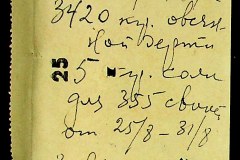 3420 пу. овсян
ной дерти
25
5 пу. соли
для 355 свиней
от 25/8 – 31/8